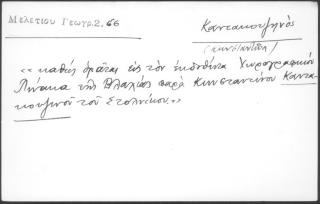 Μελετίου Γεωγρ. 2. 66
Καντακουζηνός
(Κωνσταντῖνος)
«καθὼς ὁρᾶται εἰς τὸν ἐκδοθέντα Χωρογραφικὸν
Πίνακα τῆς Βλαχίας παρὰ Κωνσταντίνου Καντα-
κουζηνοῦ τοῦ Στολνίκου.»